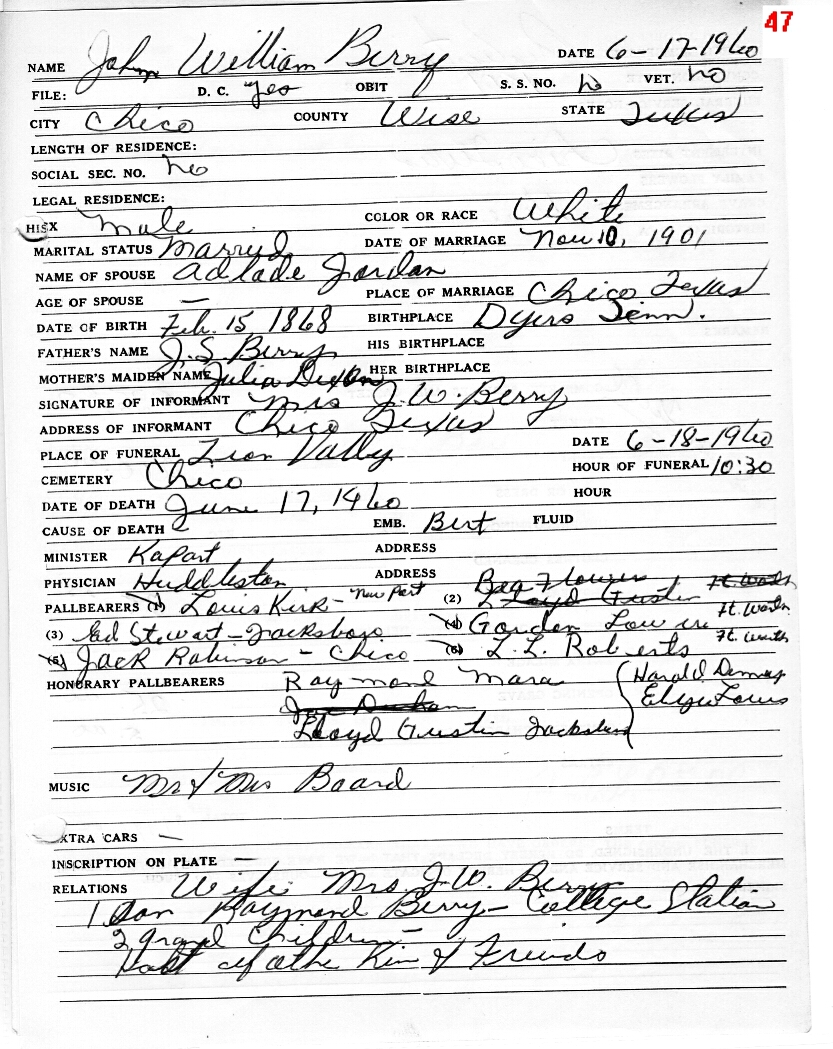 47
NAME John William Berry DATE 6-17-1960
FILE: D. C. Yes OBIT S. S. NO. No VET. No
CITY Chico COUNTY Wise STATE Texas
LENGTH OF RESIDENCE:
SOCIAL SEC. NO. No
LEGAL RESIDENCE:
HISX Male COLOR OR RACE White
MARITAL STATUS Marryd DATE OF MARRIAGE Nov 10, 1901
NAME OF SPOUSE Adlade Jordan
AGE OF SPOUSE — PLACE OF MARRIAGE Chico Texas
DATE OF BIRTH Feb. 15, 1868 BIRTHPLACE Dyers Tenn.
FATHER'S NAME J. S. Berry HIS BIRTHPLACE
MOTHER'S MAIDEN NAME Julia Dixon HER BIRTHPLACE
SIGNATURE OF INFORMANT Mrs J. W. Berry
ADDRESS OF INFORMANT Chico Texas
PLACE OF FUNERAL Valley DATE 6-18-1960
CEMETERY Chico HOUR OF FUNERAL 10:30
DATE OF DEATH June 17, 1960 HOUR
CAUSE OF DEATH — EMB. Bert FLUID
MINISTER Kapart ADDRESS
PHYSICIAN Huddleston ADDRESS
PALLBEARERS (1) Louis Kirk - New Port (2) Lloyd Gustin Ft. Worth
(3) Ed Stewart - Jacksboro (4) Gordon Ft. Worth
(5) Jack Robinson - Chico (6) L. L. Roberts Ft. Worth
HONORARY PALLBEARERS Raymond Mara Harold
Joe Durham Louis
Lloyd Gustin Jacksboro
MUSIC Mr & Mrs Board
XTRA CARS —
INSCRIPTION ON PLATE —
RELATIONS Wife Mrs J. W. Berry
1 Son Raymond Berry - College Station
2 Grand Children -
Host of othe Kin & Friends